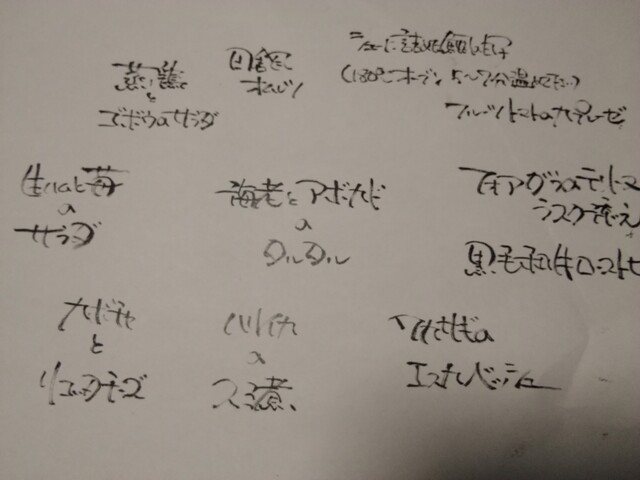 蒸し鶏
と
ゴボウのサラダ
オムレツ
シューに詰めた
(180℃オーブン 5〜7分温めて下さい)
フルーツトマトのカプレーゼ
生ハムと苺
の
サラダ
海老とアボカド
の
タルタル
フォアグラのテリーヌ
ラスク添え
黒毛和牛ロースト
カボチャ
と
リコッタチーズ
バイ貝
の
ワカサギの
エスカベッシュ